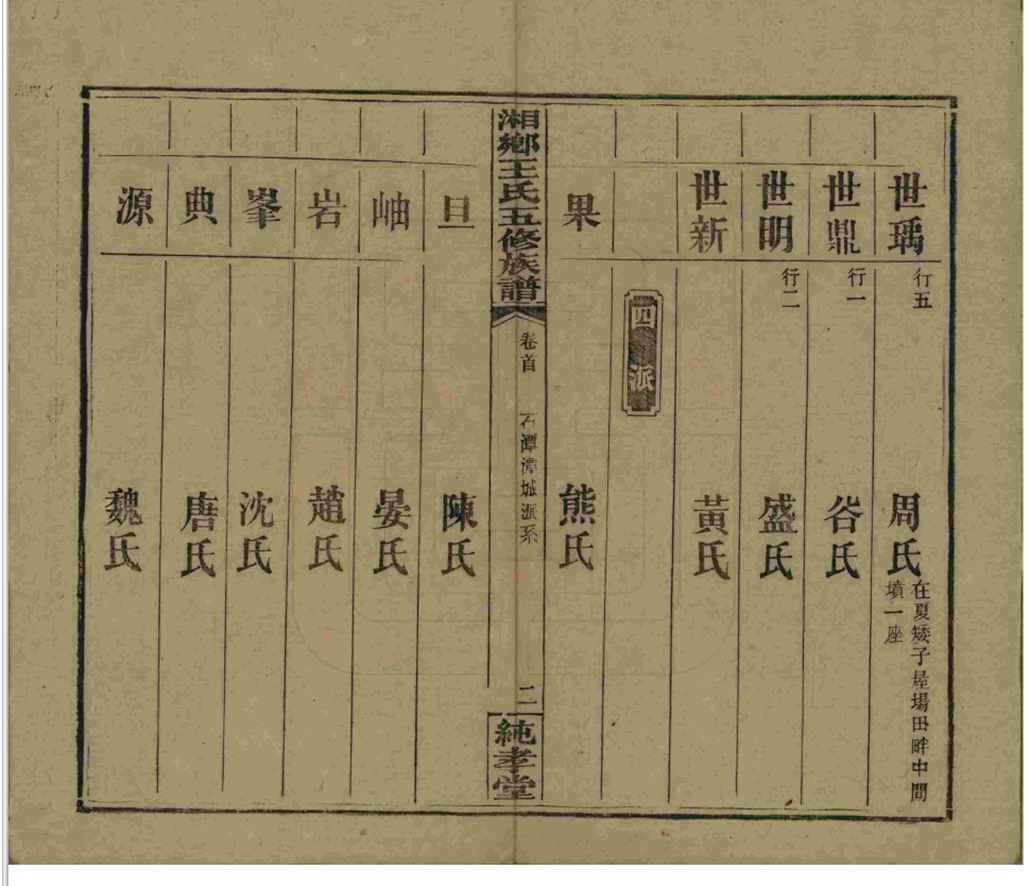 世瑀 行五 周氏 在夏矮子屋場田畔中間
墳一座
世鼎 行一 谷氏
世明 行二 盛氏
世新 黃氏
四派
果 熊氏
湘鄉王氏五修族譜 卷首 石潭城派系 二 純孝堂
旦 陳氏
岫 晏氏
岩 趙氏
峯 沈氏
典 唐氏
源 魏氏